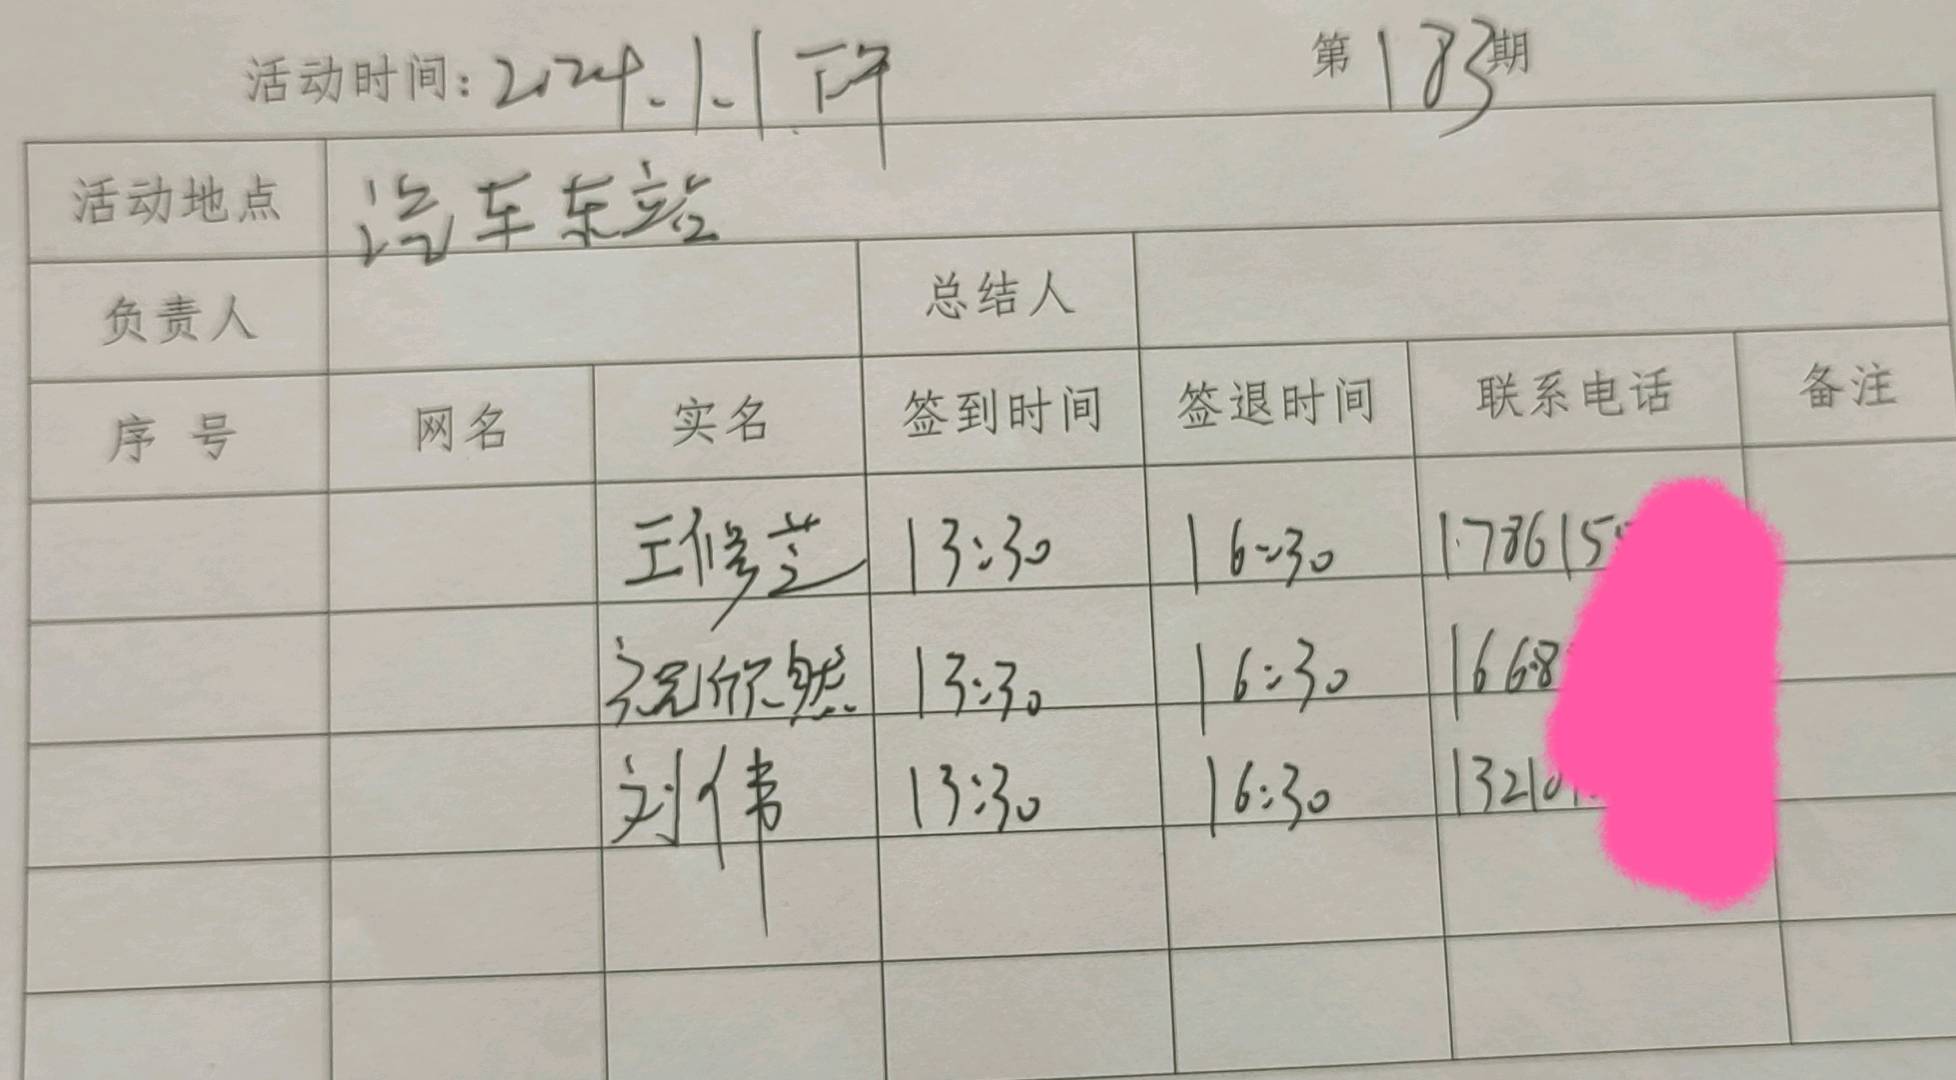 活动时间：2024.1.1 下午 第183期
活动地点 汽车东站
负责人 总结人
序号 网名 实名 签到时间 签退时间 联系电话 备注
王修芝 13:30 16:30 1786155
祝你然 13:30 16:30 1668
刘伟 13:30 16:30 13210